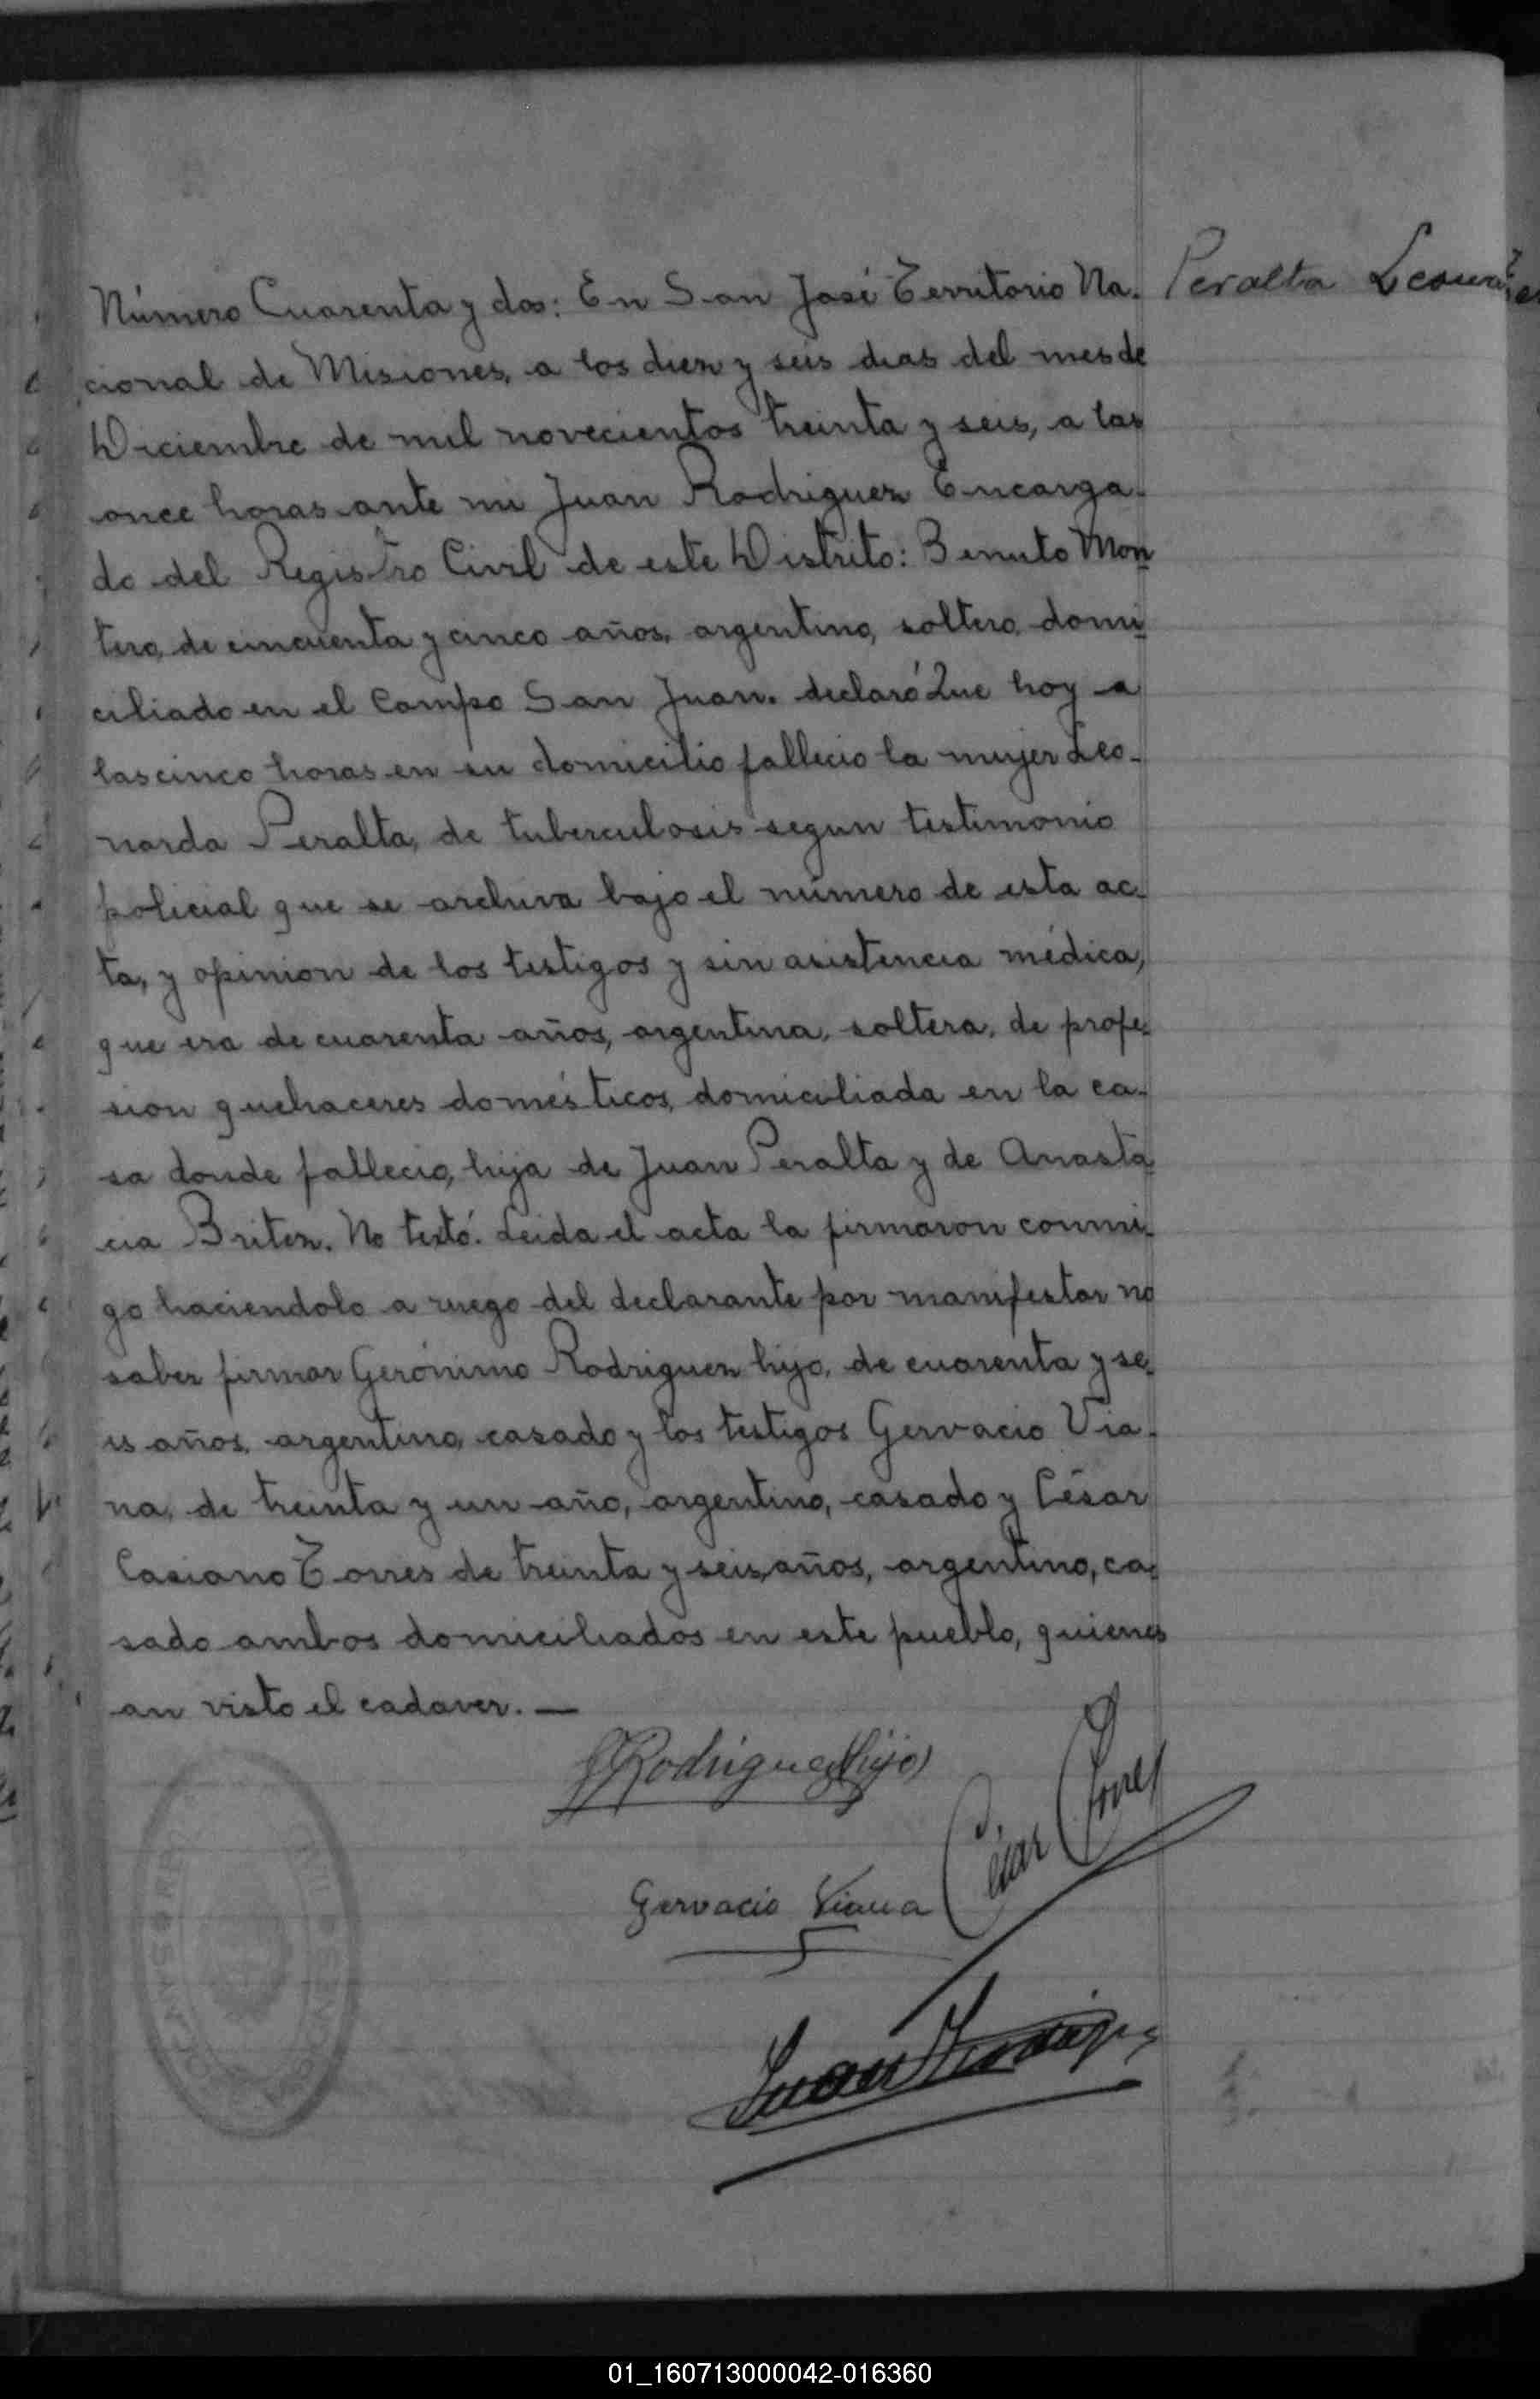 Peralta Leonar
Número Cuarenta y dos: En San José Territorio Na-
cional de Misiones, a los diez y seis dias del mes de
Diciembre de mil novecientos treinta y seis, a las
once horas ante mi Juan Rodriguez Encarga-
do del Registro Civil de este Distrito: Benuto Mon
tero, de cincuenta y cinco años, argentino, soltero, domi
ciliado en el Campo San Juan. declaró Que hoy a
las cinco horas en su domicilio fallecio la mujer Leo-
narda Peralta, de tuberculosis segun testimonio
policial que se archiva bajo el número de esta ac-
ta, y opinion de los testigos y sin asistencia médica,
que era de cuarenta años, argentina, soltera, de profe-
sion quehaceres domésticos, domiciliada en la ca-
sa donde fallecio, hija de Juan Peralta y de Anasta
cia Britez. No testó. Leida el acta la firmaron conmi-
go haciendolo a ruego del declarante por manifestar no
saber firmar Gerónimo Rodriguez hijo, de cuarenta y se-
is años, argentino, casado y los testigos Gervacio Via-
na, de treinta y un año, argentino, casado y César
Casiano Torres de treinta y seis, años, argentino, ca-
sado ambos domiciliados en este pueblo, quienes
an visto el cadaver. —
G Rodriguez (hijo)
César Torres
Gervacio Viana
Juan Rodriguez
01_160713000042-016360